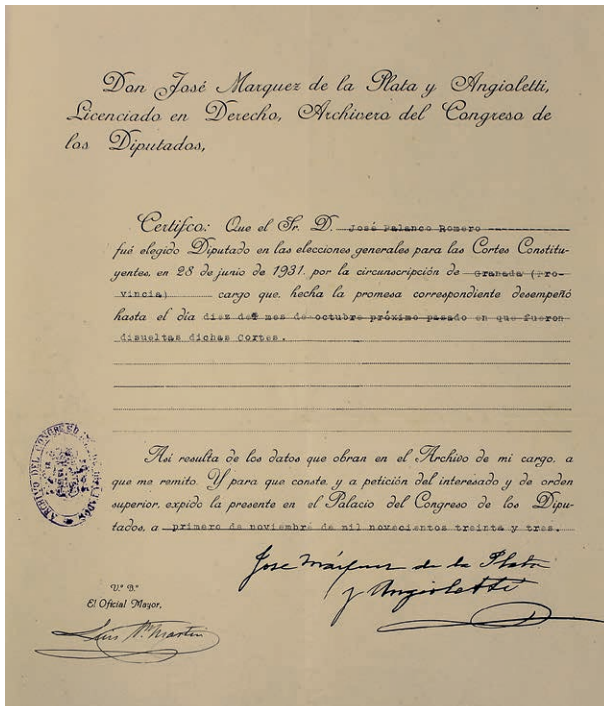 Don José Marquez de la Plata y Angioletti,
Licenciado en Derecho, Archivero del Congreso de
los Diputados,
Certifco: Que el Sr. D. José Palanco Romero
fué elegido Diputado en las elecciones generales para las Cortes Constitu-
yentes, en 28 de junio de 1931, por la circunscripción de Granada (Pro-
vincia) cargo que, hecha la promesa correspondiente desempeñó
hasta el día diez del mes de octubre próximo pasado en que fueron
disueltas dichas Cortes.
ARCHIVO DEL CONGRESO DE LOS DIPUTADOS
Asi resulta de los datos que obran en el Archivo de mi cargo, a
que me remito. Y para que conste, y a petición del interesado y de orden
superior, expido la presente en el Palacio del Congreso de los Dipu-
tados, a primero de noviembre de mil novecientos treinta y tres.
Jose Márquez de la Plata
y Angioletti
V.º B.º
El Oficial Mayor,
Luis Mª Martin